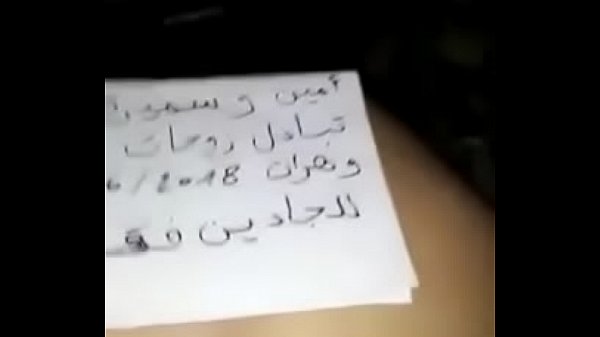 أمين و سمورة
تبادل زوجات
وهران 6/2018
للجادين فقط